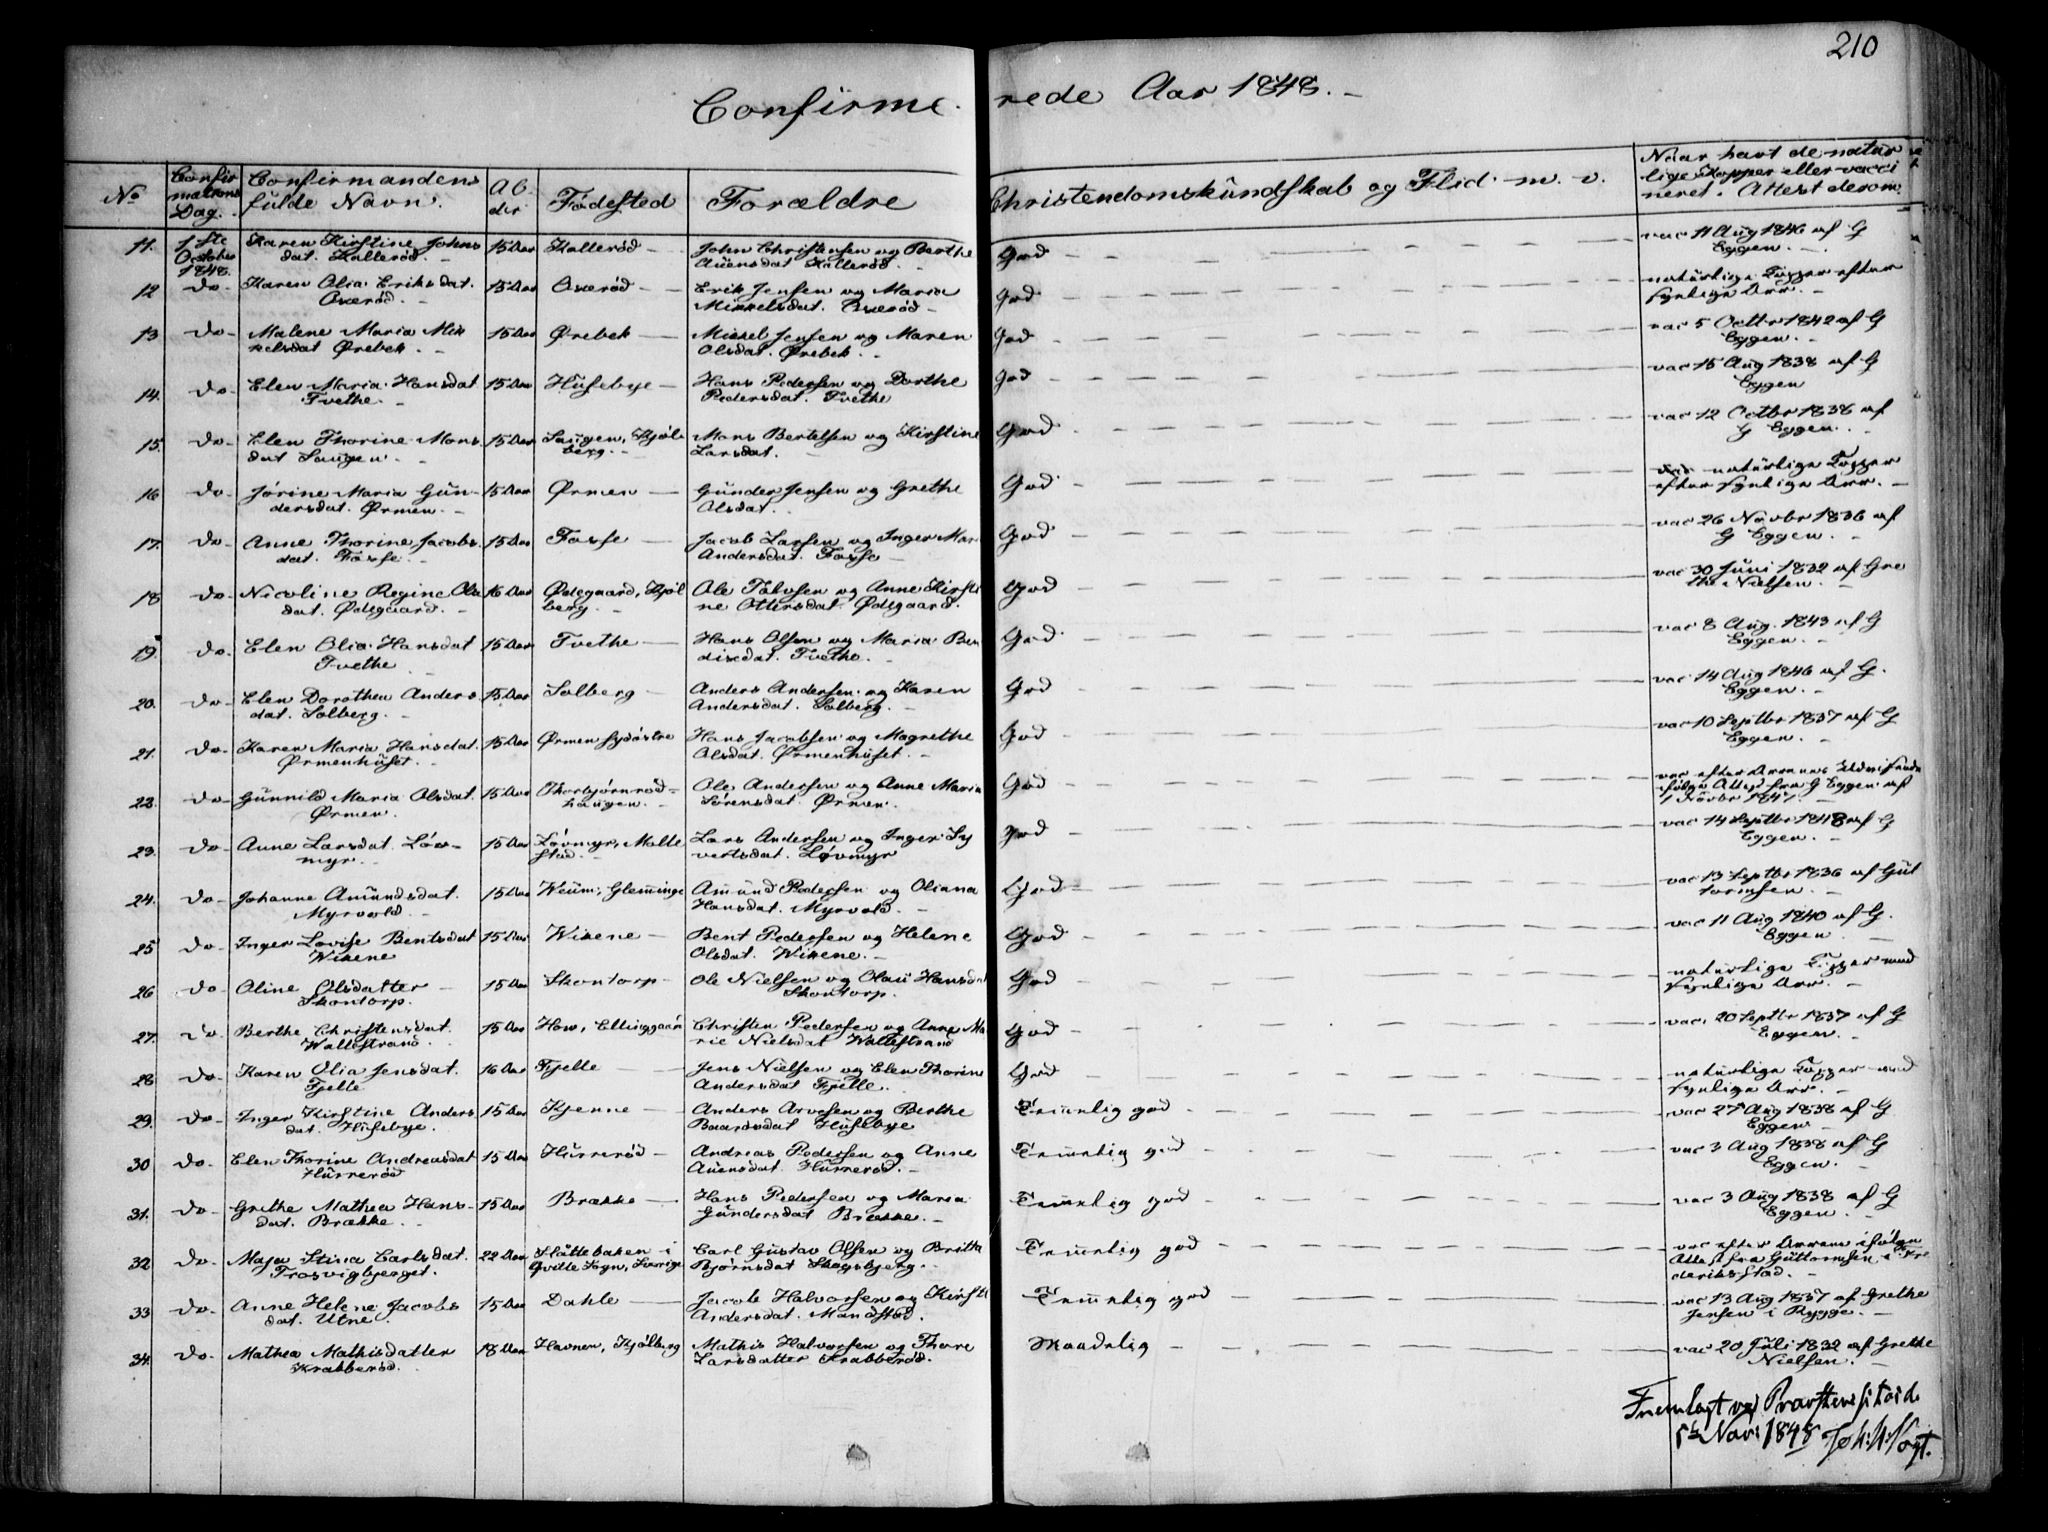 210
Confirme rede Aar 1848.
No Confirmations Dag. Confirmandens fulde Navn. Alder Födested Forældre Christendomskundskab og Flid m. v. Naar havt de naturlige Kopper eller vaccineret. Attest derom
11. 1ste October 1848. Karen Kirstine Johnsdat. Kallerød. 15 Aar Kallerød John Christensen og Berthe Auensdat Kallerød. God vac 11 Aug 1846 af G Eggen.
12 do Karen Olia Eriksdat. 15 Aar Erik Jensen og Maria Mikkelsdat. God naturlige Kopper efter synlige Arr.
13 do Malene Maria Mikkelsdat Ørebek. 15 Aar Ørebek Mikkel Jensen og Maren Olsdat. Ørebek. God vac 5 Octbr 1842 af G Eggen.
14. do Elen Maria Hansdat Tvethe. 15 Aar Husebye Hans Pedersen og Dorthe Pedersdat. Tvethe God vac 15 Aug 1838 af G Eggen
15. do Elen Thorine Monsdat Haugen. 15 Aar Haugen, Kjølberg. Mons Bertelsen og Kirstine Larsdat. God vac 12 Octbr 1838 af G Eggen.
16 do Jörine Maria Gundersdat. Ørmen. 15 Aar Ørmen Gunder Jensen og Grethe Olsdat. God naturlige Kopper efter synlige Arr.
17. do Anne Thorine Jacobsdat. Fosse. 15 Aar Fosse Jacob Larsen og Inger Mari Andersdat. Fosse God vac 26 Novbr 1836 af G Eggen.
18 do Nicoline Regine Olsdat. Ødegaard. 16 Aar Ødegaard, Kjølberg. Ole Tolvsen og Anne Kirstine Ottersdat. Ødegaard. God vac 30 Juni 1832 af Grethe Nielsen.
19. do Elen Olia Hansdat Tvethe 15 Aar Tvethe Hans Olsen og Maria Bendixdat. Tvethe. God vac 8 Aug. 1843 af G Eggen.
20. do Elen Dorothea Andersdat. Solberg. 15 Aar Solberg Anders Andersen og Karen Andersdat. Solberg. God vac 14 Aug 1846 af G. Eggen.
21. do Karen Maria Hansdat. Ørmenhuset. 15 Aar Ørmen sydöstre Hans Jacobsen og Magrethe Olsdat. Ørmenhuset. God vac 10 Septbr 1837 af G Eggen.
22. do Gunnild Maria Olsdat. Ørmen. 15 Aar Thorbjørnrød-haugen. Ole Andersen og Anne Maria Sörensdat. Ørmen. God vac efter Arrenes Udvisende ifölge Attest fra G Eggen af 1 Novbr 1847.
23. do Anne Larsdat. Løvmyr. 15 Aar Løvmyr, Mallestad. Lars Andersen og Inger Syvertsdat. Løvmyr God vac 14 Septbr 1848 af G Eggen.
24. do Johanne Amundsdat. Myrvold. 15 Aar Weum, Glemminge Amund Pedersen og Oliana Hansdat. Myrvold. God vac 13 Septbr 1836 af Guttormsen.
25 do Inger Lovise Bentsdat Wikene 15 Aar Wikene Bent Pedersen og Helene Olsdat. Wikene. God vac 11 Aug 1840 af G. Eggen
26 do Oline Olsdatter Skontorp. 15 Aar Skontorp Ole Nielsen og Olau Hansdat Skontorp. God naturlige Kopper med synlige Arr.
27. do Berthe Christensdat. Wallestrand. 15 Aar How, Ellinggaard Christen Pedersen og Anne Marie Nielsdat Wallestrand God vac. 20 Septbr 1837 af G Eggen.
28 do Karen Olia Jensdat. Fjelle 16 Aar Fjelle Jens Nielsen og Elen Thorine Andersdat Fjelle. God naturlige Kopper med synlige Arr.
29. do Inger Kirstine Andersdat. Husebye. 15 Aar Kjenne Anders Arvesen og Berthe Baardsdat Husebye Temmelig god vac 27 Aug 1838 af G Eggen
30 do Elen Thorine Andreasdat Hurrerød 15 Aar Hurrerød Andreas Pedersen og Anne Auensdat. Hurrerød. Temmelig god vac 3 Aug 1838 af G Eggen.
31. do Grethe Mathea Hansdat. Brække. 15 Aar Brække Hans Pedersen og Maria Gundersdat Brække. Temmelig god vac 3 Aug 1838 af G Eggen.
32 do Maja Stina Carlsdat. Trosvigbjerget. 22 Aar Hattebaken i Qville Sogn, Sverige Carl Gustav Olsen og Britta Bjørnsdat Skogsbjerg. Temmelig god vac efter Arrene ifölge Attest fra Guttormsen i Frederiksstad.
33 do Anne Helene Jacobsdat. Utne. 15 Aar Dahle Jacob Halvorsen og Kirsti Andersdat. Mandstad. Temmelig god vac 13 Aug 1837 af Grethe Jensen i Rygge.
34. do Mathea Mathisdatter Krabberød. 18 Aar Havnen, Kjølberg Mathis Halvorsen og Thore Larsdatter Krabberød. Maadelig vac 20 Juli 1832 af Grethe Nielsen.
Fremlagt ved Provstevisitatsen
Nov: 1848 Joh. Vogt.